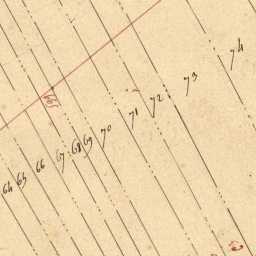 64 65 66 67 68 69 70 71 72 73 74